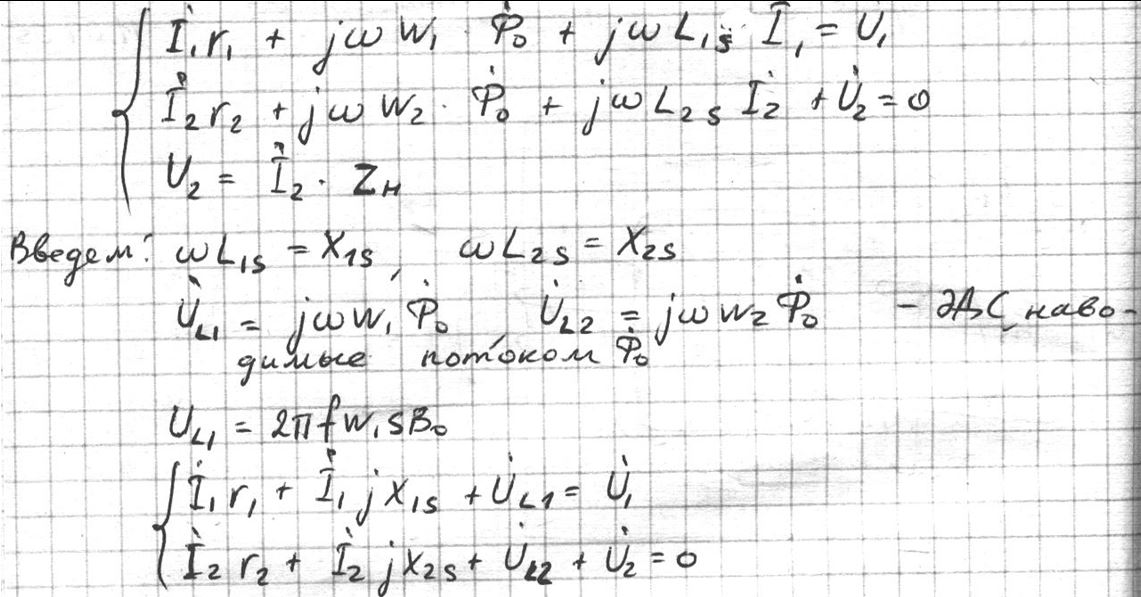 İ₁r₁ + jω w₁ · Φ̇₀ + jω L₁s İ₁ = U̇₁
İ₂r₂ + jω w₂ · Φ̇₀ + jω L₂s İ₂ + U̇₂ = 0
U₂ = İ₂ · Zн
Введем: ωL₁s = X₁s, ωL₂s = X₂s
U̇L₁ = jωw₁Φ̇₀, U̇L₂ = jωw₂Φ̇₀ - ЭДС, наво-
димые потоком Φ̇₀
UL₁ = 2πfw₁sB₀
İ₁r₁ + İ₁jX₁s + U̇L₁ = U̇₁
İ₂r₂ + İ₂jX₂s + U̇L₂ + U̇₂ = 0